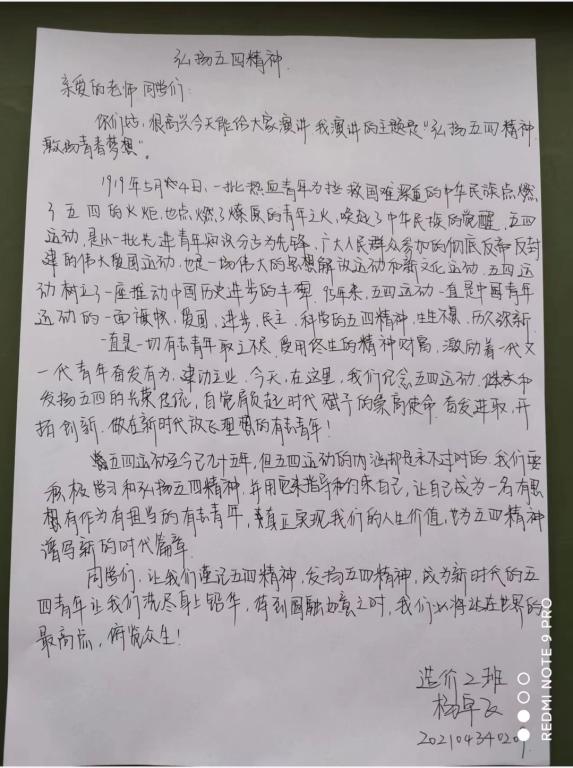 弘扬五四精神
亲爱的老师同学们:
你们好,很高兴今天能给大家演讲 我演讲的主题是“弘扬五四精神
激扬青春梦想”。
1919年5月4日、一批热血青年为拯救国难深重的中华民族点燃
了五四的火炬,也点燃了燎原的青年之火,唤起了中华民族的觉醒,五四
运动,是以一批先进青年知识分子为先锋,广大人民群众参加的彻底反帝反封
建的伟大爱国运动,也是一场伟大的思想解放运动和新文化运动,五四运
动树立了一座推动中国历史进步的丰碑,95年来,五四运动一直是中国青年
运动的一面旗帜,爱国,进步,民主,科学的五四精神,生生不息,历久弥新
一直是一切有志青年取之不尽,受用终生的精神财富,激励着一代又
一代青年奋发有为,建功立业,今天,在这里,我们纪念五四运动,继承和
发扬五四的光荣传统,自觉肩负起时代赋予的崇高使命,奋发进取,开
拓创新,做在新时代放飞理想的有志青年!
五四运动至今已九十五年,但五四运动的内涵却是永不过时的,我们要
积极学习和弘扬五四精神,并用它来指导和约束自己,让自己成为一名有思
想有作为有担当的有志青年,真正实现我们的人生价值,为五四精神
谱写新的时代篇章
同学们,让我们谨记五四精神,发扬五四精神,成为新时代的五
四青年让我们洗尽身上铅华,待到圆融之时,我们必将站在世界的
最高点,俯览众生!
造价2班
杨卓飞
REDMI NOTE 9 PRO